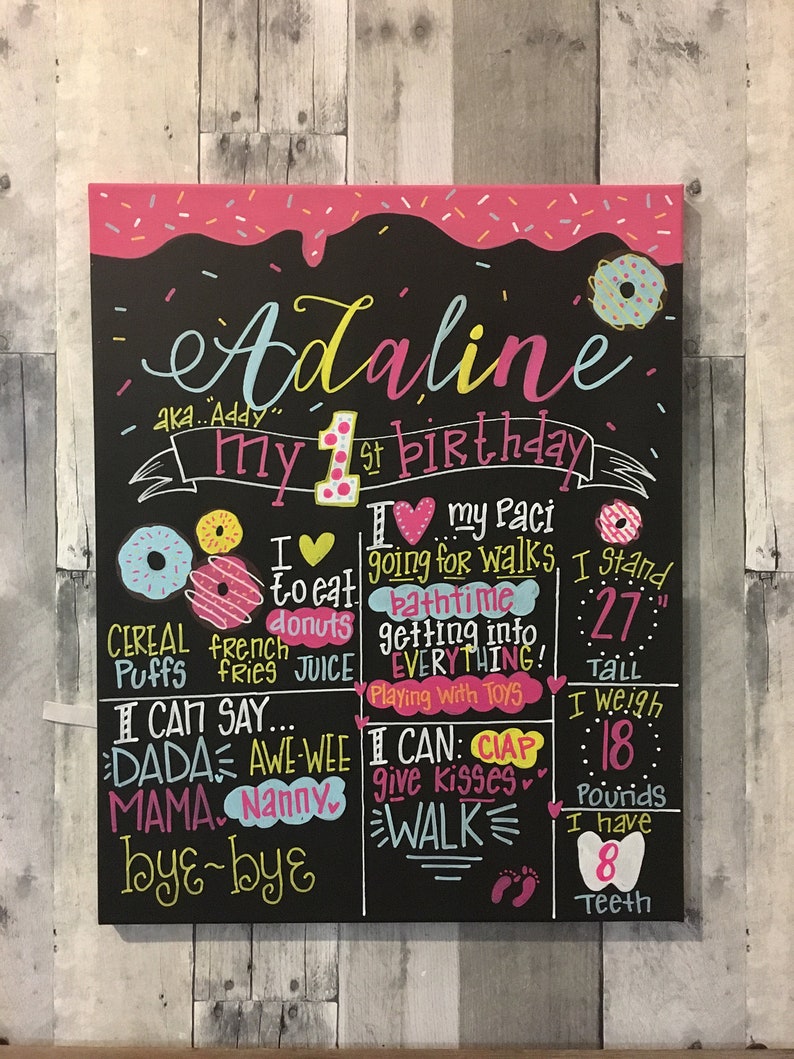 Adaline
aka.."Addy"
my 1st birthday
I ♥
to eat
donuts
CEREAL
PUFFS
french
fries
JUICE
I ♥ ...my Paci
going for walks
bathtime
getting into
EVERYTHING!
Playing With TOYS
I Stand
27"
Tall
I CAN SAY...
DADA
AWE-WEE
MAMA
Nanny
bye~bye
I CAN: CLAP
give Kisses
WALK
I Weigh
18
Pounds
I have
8
Teeth